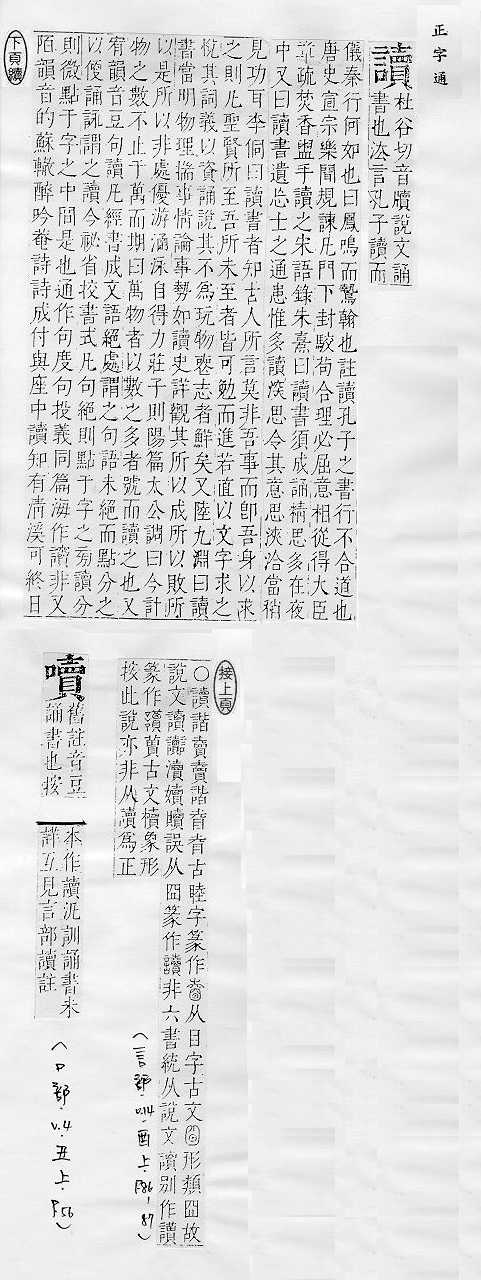 正字通
讀
杜谷切音牘說文誦
書也法言孔子讀而
儀秦行何如也曰鳳鳴而鷙翰也註讀孔子之書行不合道也
唐史宣宗樂聞規諫凡門下封駁苟合理必屈意相從得大臣
章疏焚香盥手讀之宋語錄朱熹曰讀書須成誦精思多在夜
中又曰讀書遺忘士之通患惟多讀深思令其意思浹洽當稍
見功百李侗曰讀書者知古人所言莫非吾事而卽吾身以求
之則凡聖賢所至吾所未至者皆可勉而進若直以文字求之
悅其詞義以資誦說其不為玩物喪志者鮮矣又陸九淵曰讀
書當明物理揣事情論事勢如讀史詳觀其所以成所以敗所
以是所以非處優游涵泳自得力莊子則陽篇太公調曰今計
物之數不止于萬而期曰萬物者以數之多者號而讀之也又
宥韻音豆句讀凡經書成文語絕處謂之句語未絕而點分之
以便誦詠謂之讀今祕省挍書式凡句絕則點于字之旁讀分
則微點于字之中閒是也通作句度句投義同篇海作讀非又
陌韻音的蘇轍醉吟菴詩詩成付與座中讀知有淸溪可終日
下頁續
接上頁
〇讀諧𧶠𧶠諧㚆㚆古睦字篆作從目字古文形類囧故
說文讀讟瀆嬻贖誤从囧篆作讀非六書統从說文讀別作讀
篆作𧶠古文櫝象形
挍此說亦非从讀為正
(言部.v.14.酉上.P.86-87)
嘳
舊註音豆
誦書也按
本作讀汎訓誦書未
詳互見言部讀註
(口部.v.4.丑上.P.56)